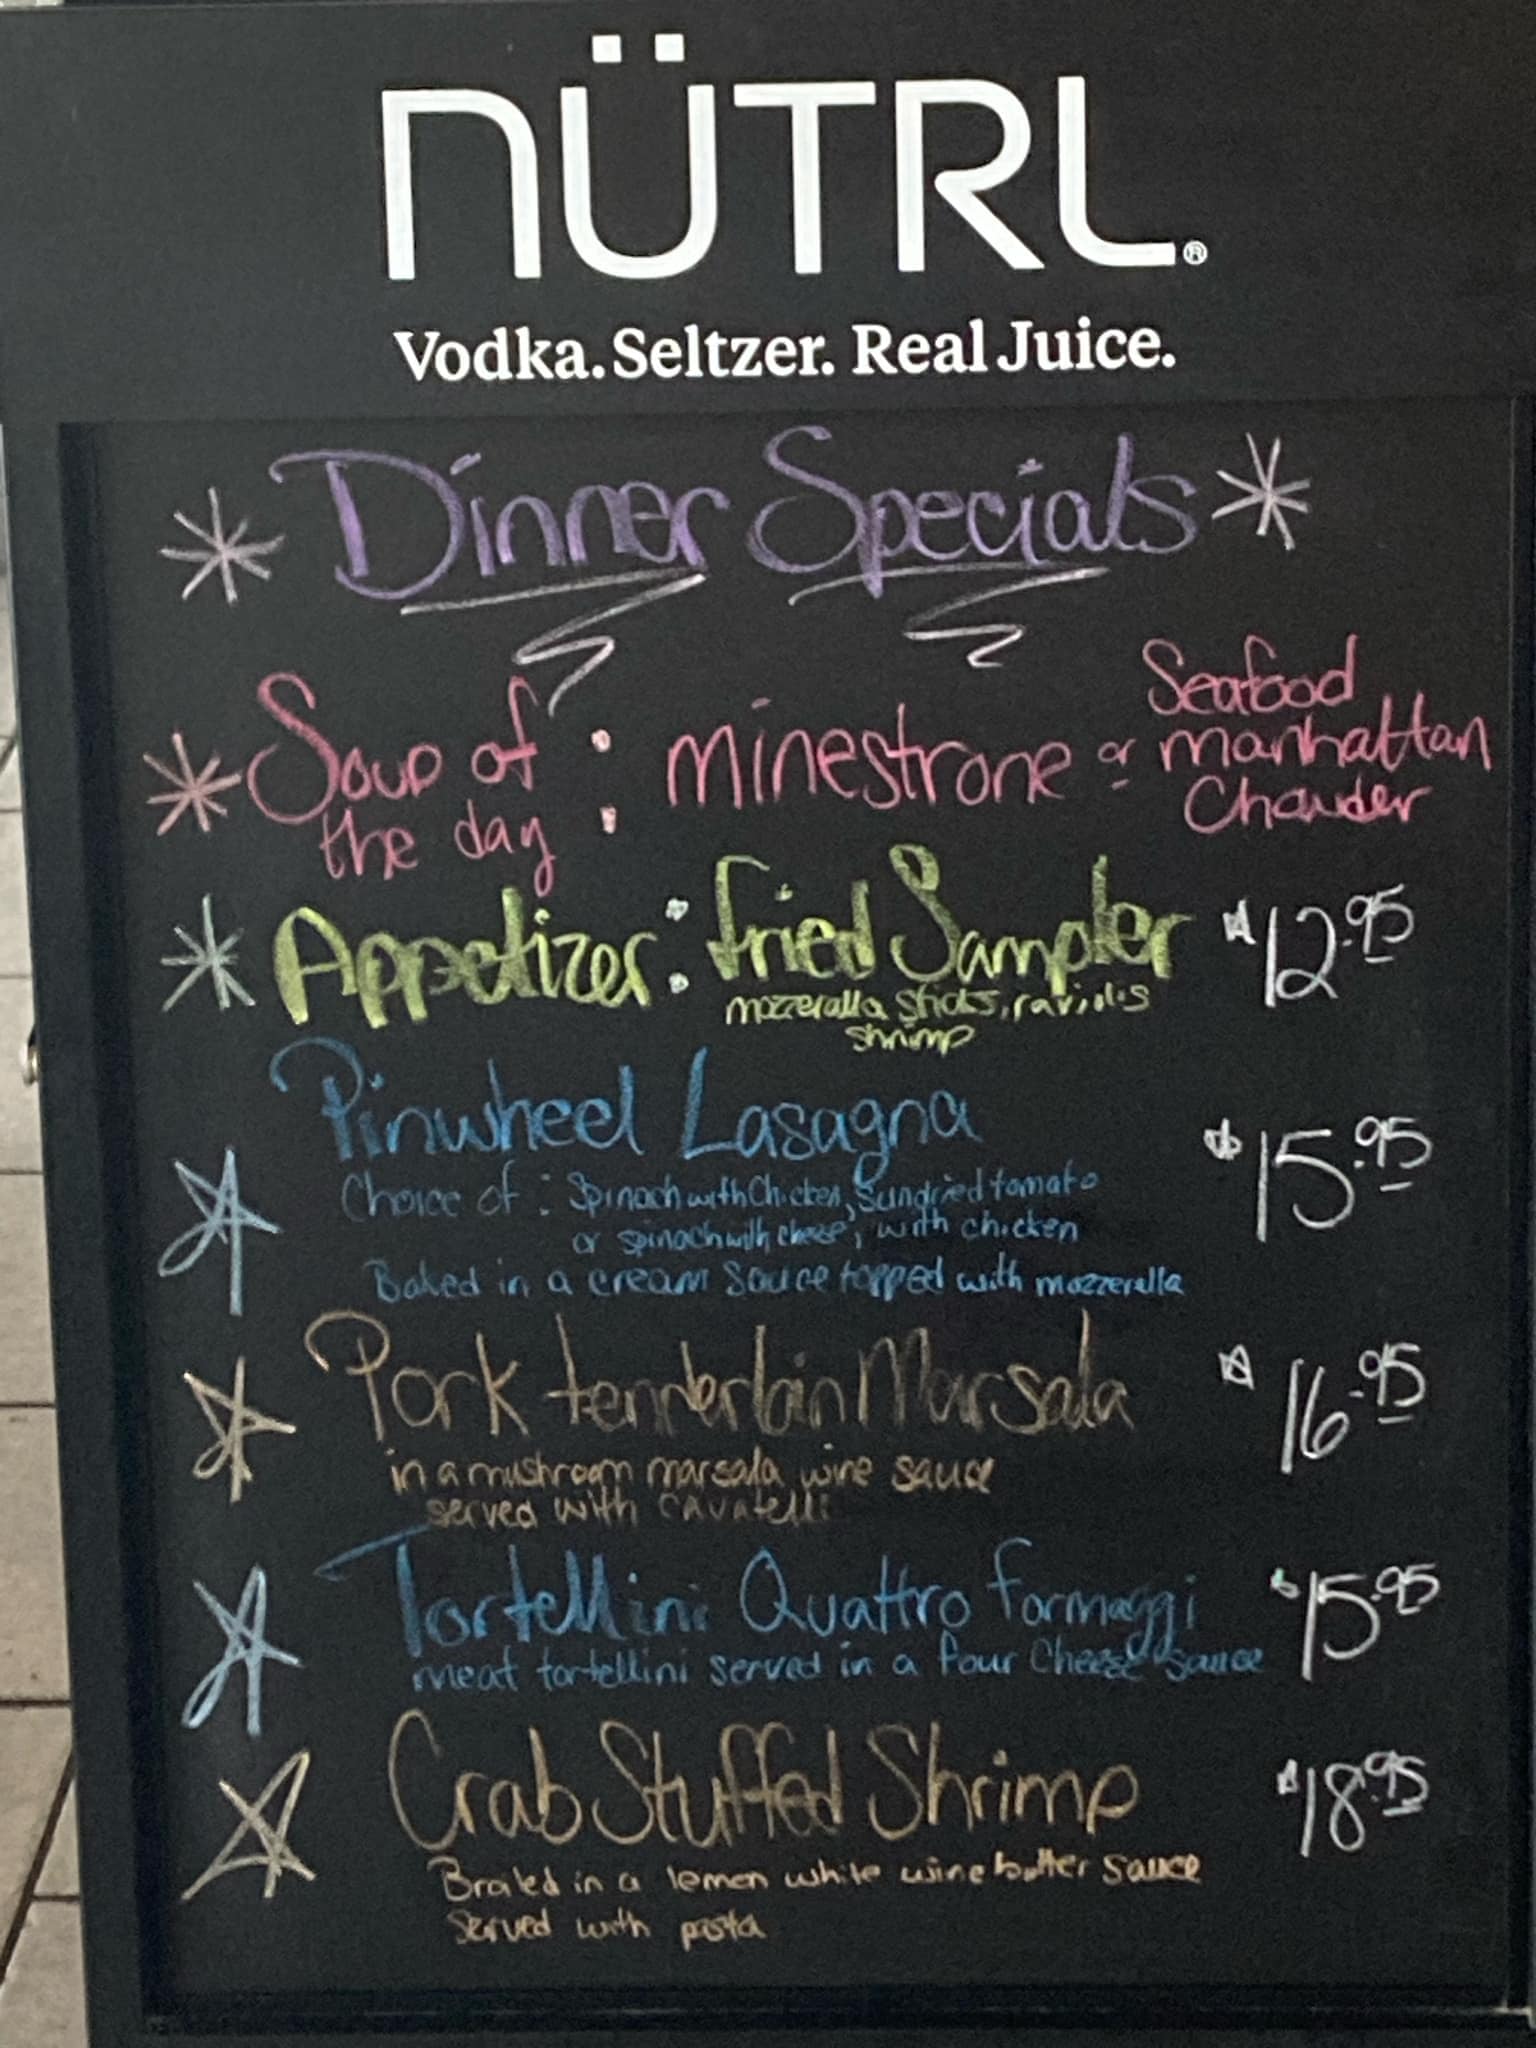 NÜTRL®
Vodka. Seltzer. Real Juice.
Dinner Specials
Soup of the day : minestrone or Seafood manhattan Chowder
Appetizer: Fried Sampler $12.95
mozzeralla sticks, raviolis
shrimp
Pinwheel Lasagna $15.95
Choice of : Spinach with Chicken, Sundried tomato
or spinach with cheese, with chicken
Baked in a cream sauce topped with mozzerella
Pork tenderloin Marsala $16.95
in a mushroom marsala wine sauce
served with cavatelli
Tortellini Quattro Formaggi $15.95
meat tortellini served in a four Cheese sauce
Crab Stuffed Shrimp $18.95
Broiled in a lemon white wine butter sauce
Served with pasta